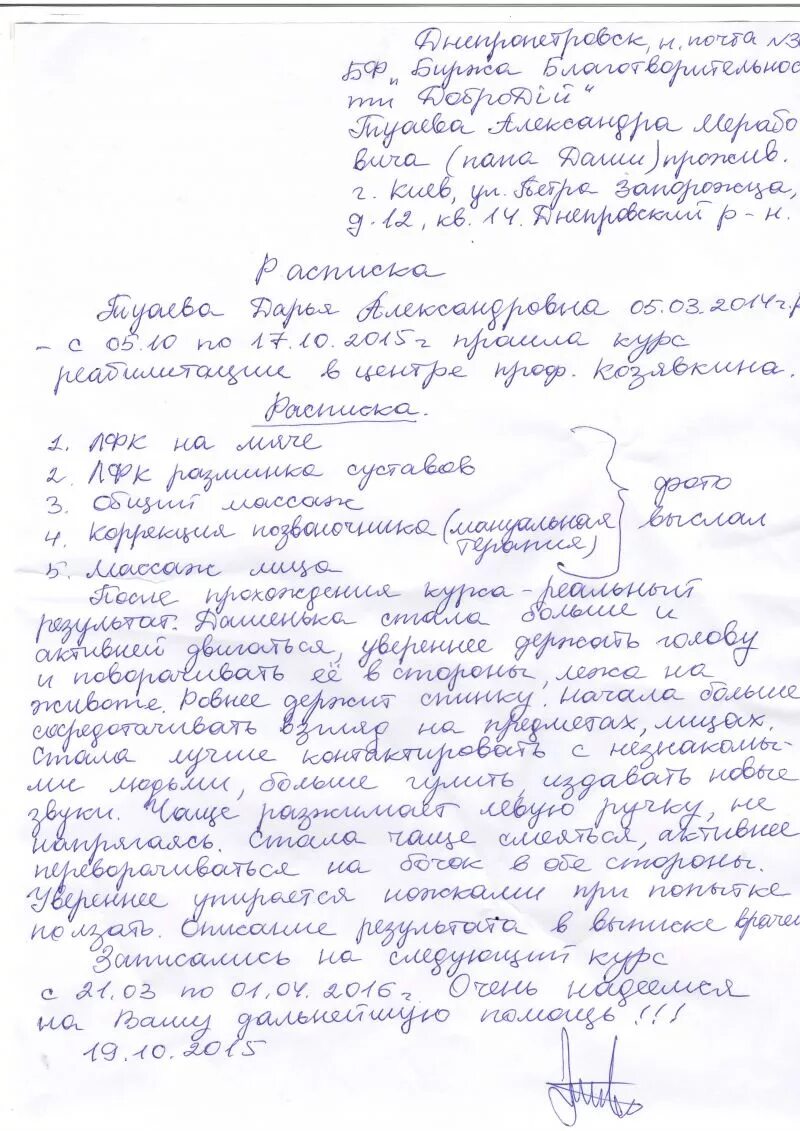 Днепропетровск, н. почта №3
БФ „Биржа Благотворительнос
ти ДоброДій“
Туаева Александра Мерабо
вича (папа Даши) прожив.
г. Киев, ул. Петра Запорожца,
д. 12, кв. 14. Днепровский р-н.
Расписка
Туаева Дарья Александровна 05.03.2014г.р
– с 05.10 по 17.10.2015г прошла курс
реабилитации в центре проф. Козявкина.
Расписка.
1. ЛФК на мяче
2. ЛФК разминка суставов
3. Общий массаж
4. Коррекция позвоночника (мануальная
терапия)
5. Массаж лица
фото
выслал
После прохождения курса – реальный
результат. Дашенька стала больше и
активней двигаться, увереннее держать голову
и поворачивать её в стороны, лежа на
животе. Ровнее держит спинку. Начала больше
сосредотачивать взгляд на предметах, лицах.
Стала лучше контактировать с незнакомы-
ми людьми, больше гулить, издавать новые
звуки. Чаще разжимает левую ручку, не
напрягаясь. Стала чаще смеяться, активнее
переворачиваться на бочок в обе стороны.
Увереннее упирается ножками при попытке
ползать. Описание результата в выписке врачей
Записались на следующий курс
с 21.03 по 01.04.2016г. Очень надеемся
на Вашу дальнейшую помощь!!!
19.10.2015